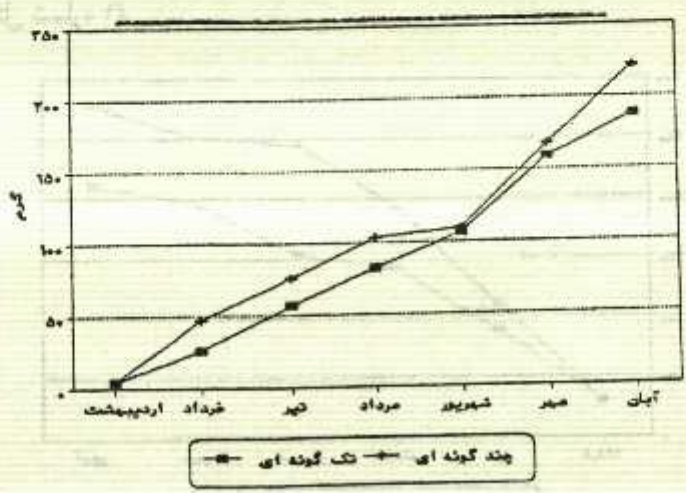 ۲۵۰
۲۰۰
۱۵۰
۱۰۰
۵۰
۰
گرم
اردیبهشت خرداد تیر مرداد شهریور مهر آبان
تک گونه ای چند گونه ای